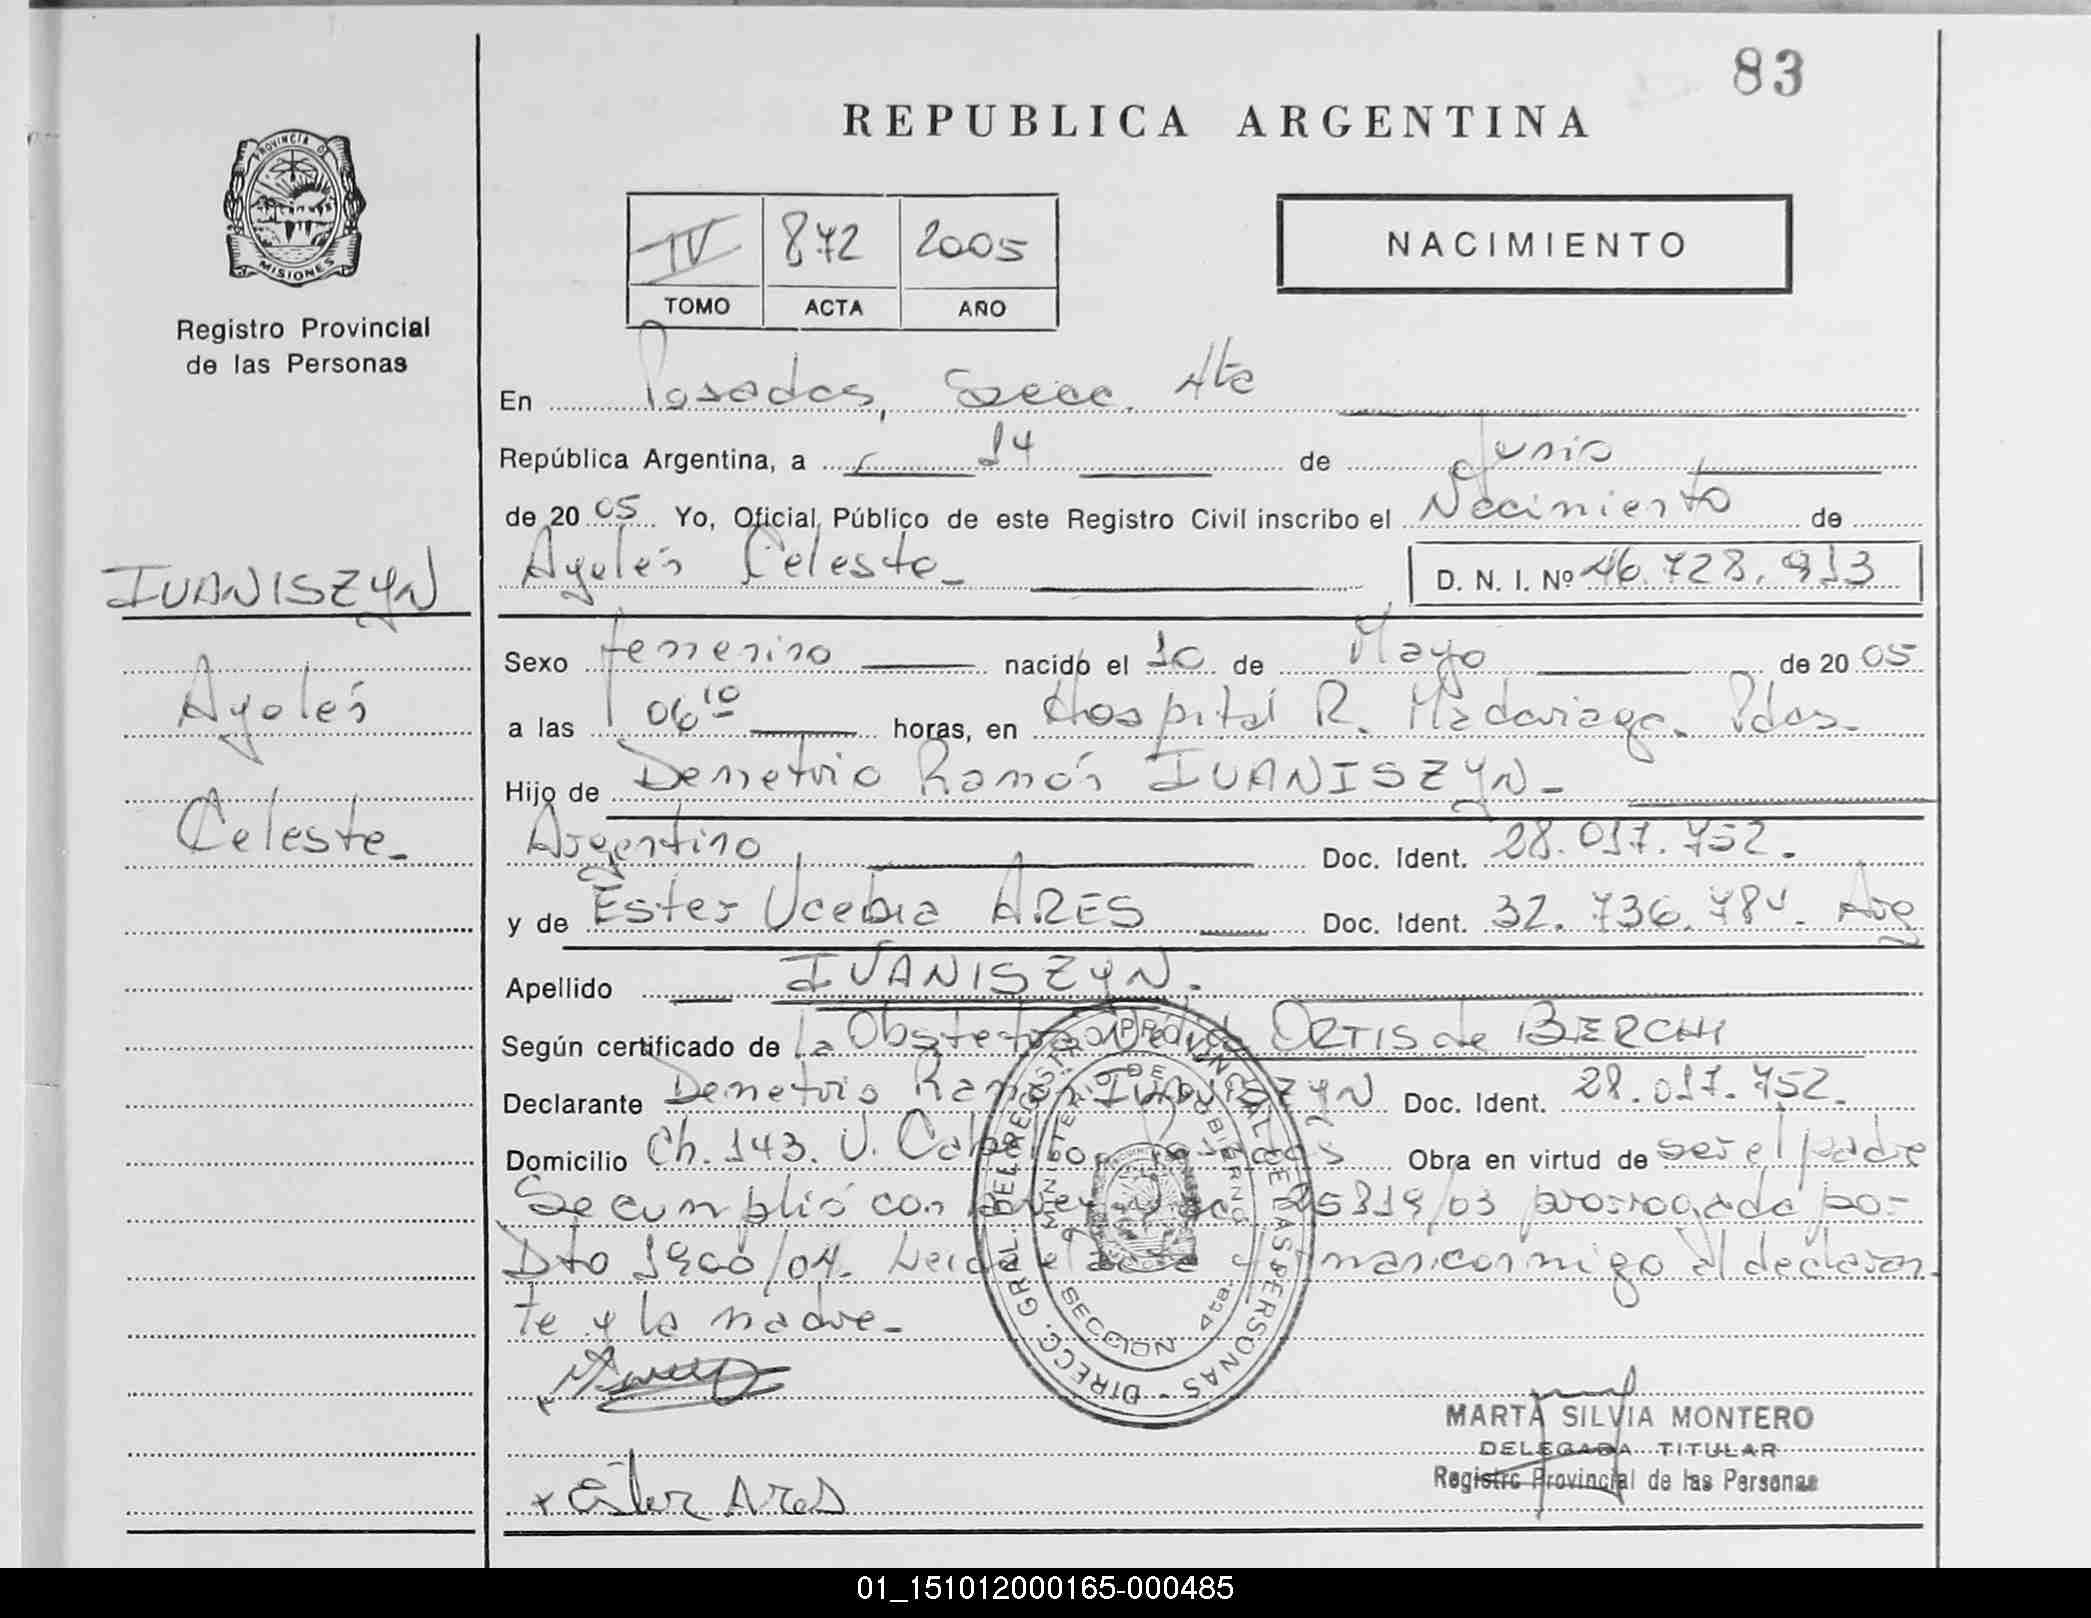 83
REPUBLICA ARGENTINA
PROVINCIA DE
MISIONES
Registro Provincial
de las Personas
IV 872 2005
TOMO ACTA AÑO
NACIMIENTO
En Posadas, Secc. 4ta
República Argentina, a 14 de Junio
de 2005 Yo, Oficial Público de este Registro Civil inscribo el Nacimiento de
Ayelén Celeste
D. N. I. Nº 46.728.913
IUANISZYN
Ayelén
Celeste
Sexo femenino nacido el 10 de Mayo de 2005
a las 06 10 horas, en Hospital R. Madariaga. Pdas.
Hijo de Demetrio Ramón IUANISZYN
Argentino Doc. Ident. 28.017.752.
y de Ester Ucebia ARES Doc. Ident. 32.736.784. Arg
Apellido IUANISZYN.
Según certificado de la Obstetra ORTIS de BERCHI
Declarante Demetrio Ramón IUANISZYN Doc. Ident. 28.017.752.
Domicilio Ch. 143. U. Posadas Obra en virtud de ser el padre
Se cumplió con 25819/03 prorrogada por
Dto 1900/04. Leida el acta firman conmigo el declaran
te y la madre
DIRECC. GRAL. DEL REGISTRO PROVINCIAL DE LAS PERSONAS
MINISTERIO DE GOBIERNO
SECCION 4ta.
Ester Ares
MARTA SILVIA MONTERO
DELEGADA TITULAR
Registro Provincial de las Personas
01_151012000165-000485